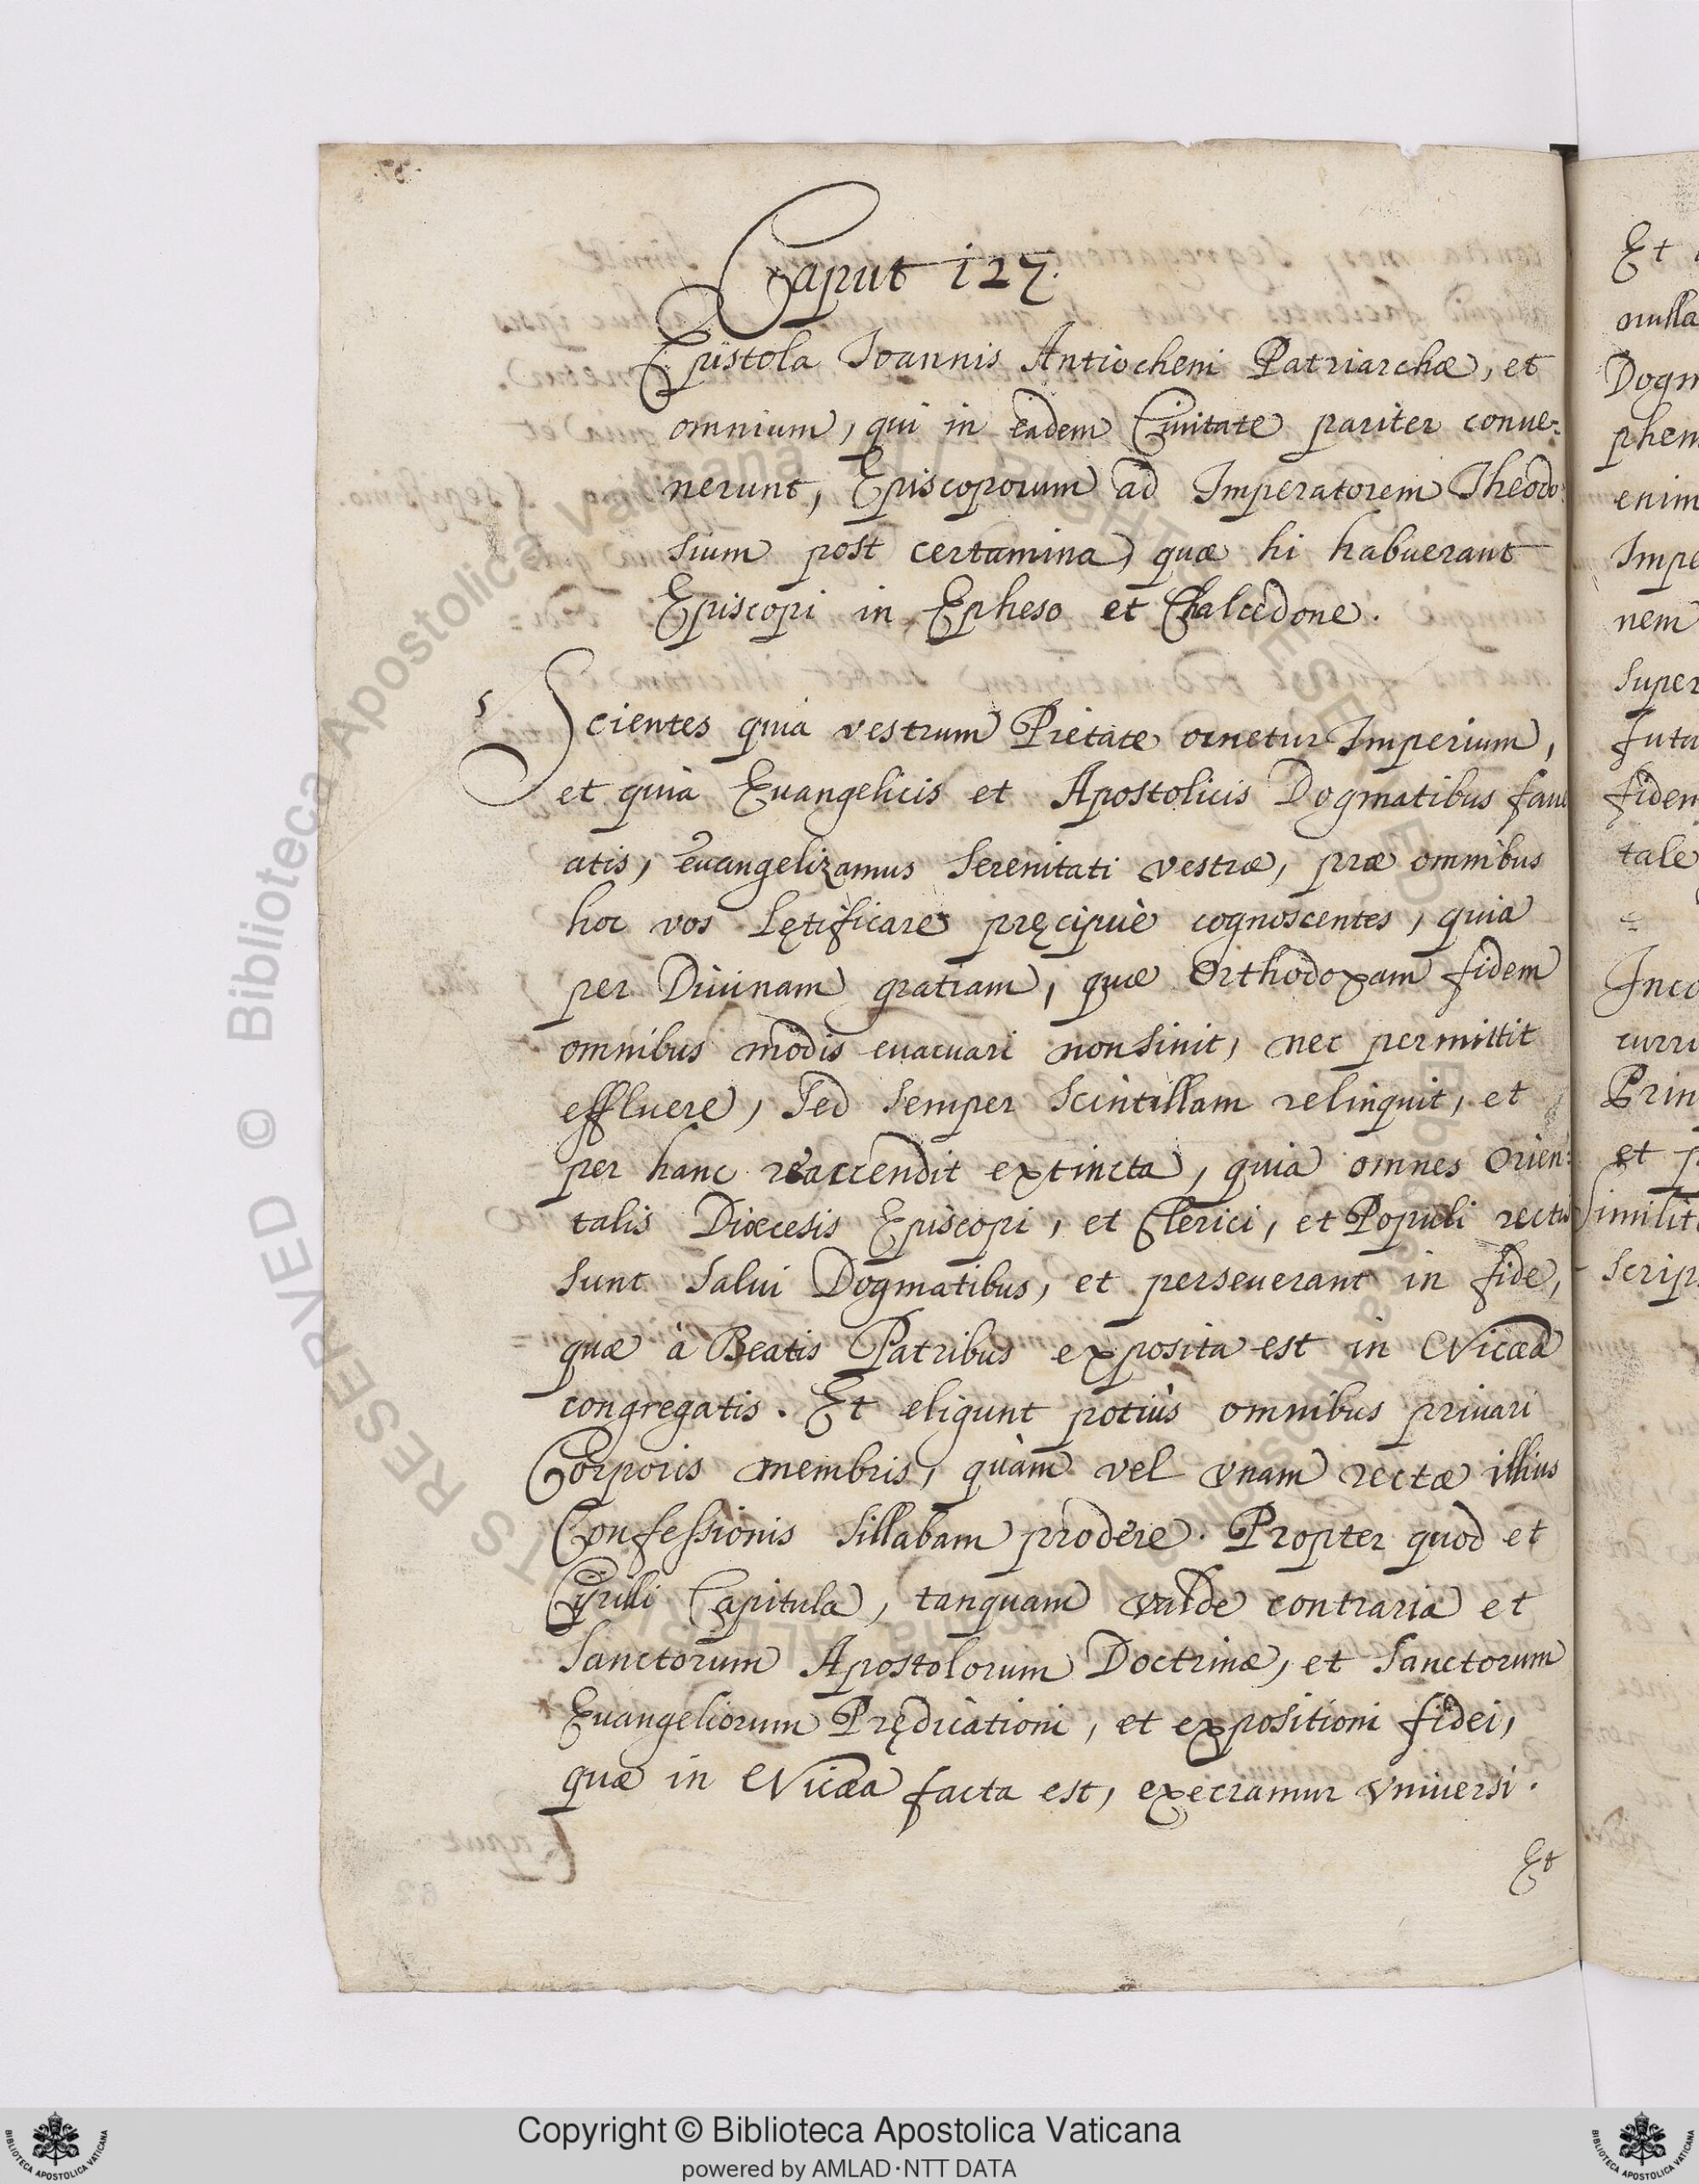 Caput 127.
Epistola Joannis Antiocheni Patriarchæ, et
omnium, qui in eadem Ciuitate pariter conue:
nerunt, Episcoporum ad Imperatorem Theodo
sium post certamina, quæ hi habuerant
Episcopi in Epheso et Chalcedone.
Scientes quia vestrum Pietate ornetur Imperium,
et quia Euangelicis et Apostolicis Dogmatibus faue
atis, euangelizamus Serenitati vestræ, præ omnibus
hoc vos lętificare pręcipuè cognoscentes, quia
per Diuinam gratiam, quæ Orthodoxam fidem
omnibus modis euacuari non sinit, nec permittit
effluere, sed semper scintillam relinquit, et
per hanc reaccendit extincta, quia omnes Orien:
talis Diœcesis Episcopi, et Clerici, et Populi rectis
sunt salui Dogmatibus, et perseuerant in fide,
quæ à Beatis Patribus exposita est in Nicæa
congregatis. Et eligunt potiùs omnibus priuari
Corporis membris, quàm vel vnam rectæ illius
Confessionis sillabam prodere. Propter quod et
Cyrilli Capitula, tanquam valde contraria et
Sanctorum Apostolorum Doctrinæ, et Sanctorum
Euangeliorum Prędicationi, et expositioni fidei,
quæ in Nicæa facta est, execramur vniuersi.
Et
Et
nulla
Dogm
phem
enim
Impe
nem
super
futa
fidem
tale
Inco
curri
Prin
et p
similit
scrip
© Biblioteca Apostolica Vaticana ALL RIGHTS RESERVED
Copyright © Biblioteca Apostolica Vaticana
powered by AMLAD·NTT DATA
BIBLIOTECA APOSTOLICA VATICANA
BIBLIOTECA APOSTOLICA VATICANA